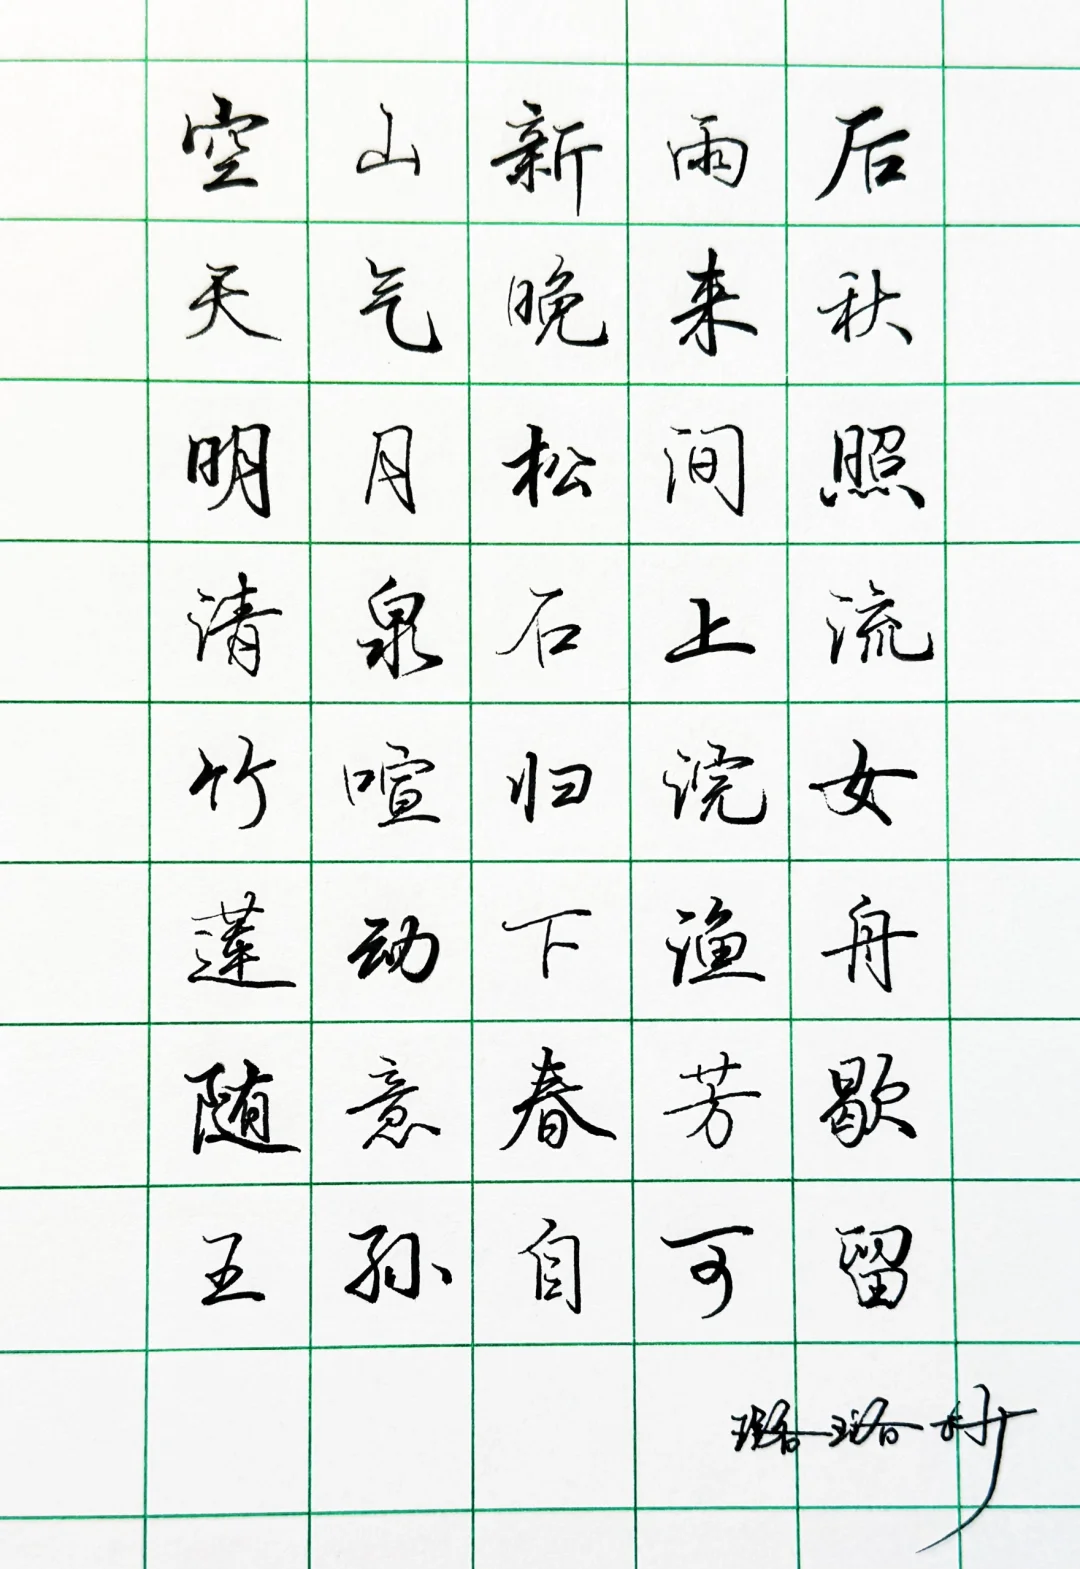 空山新雨后
天气晚来秋
明月松间照
清泉石上流
竹喧归浣女
莲动下渔舟
随意春芳歇
王孙自可留
璐璐抄